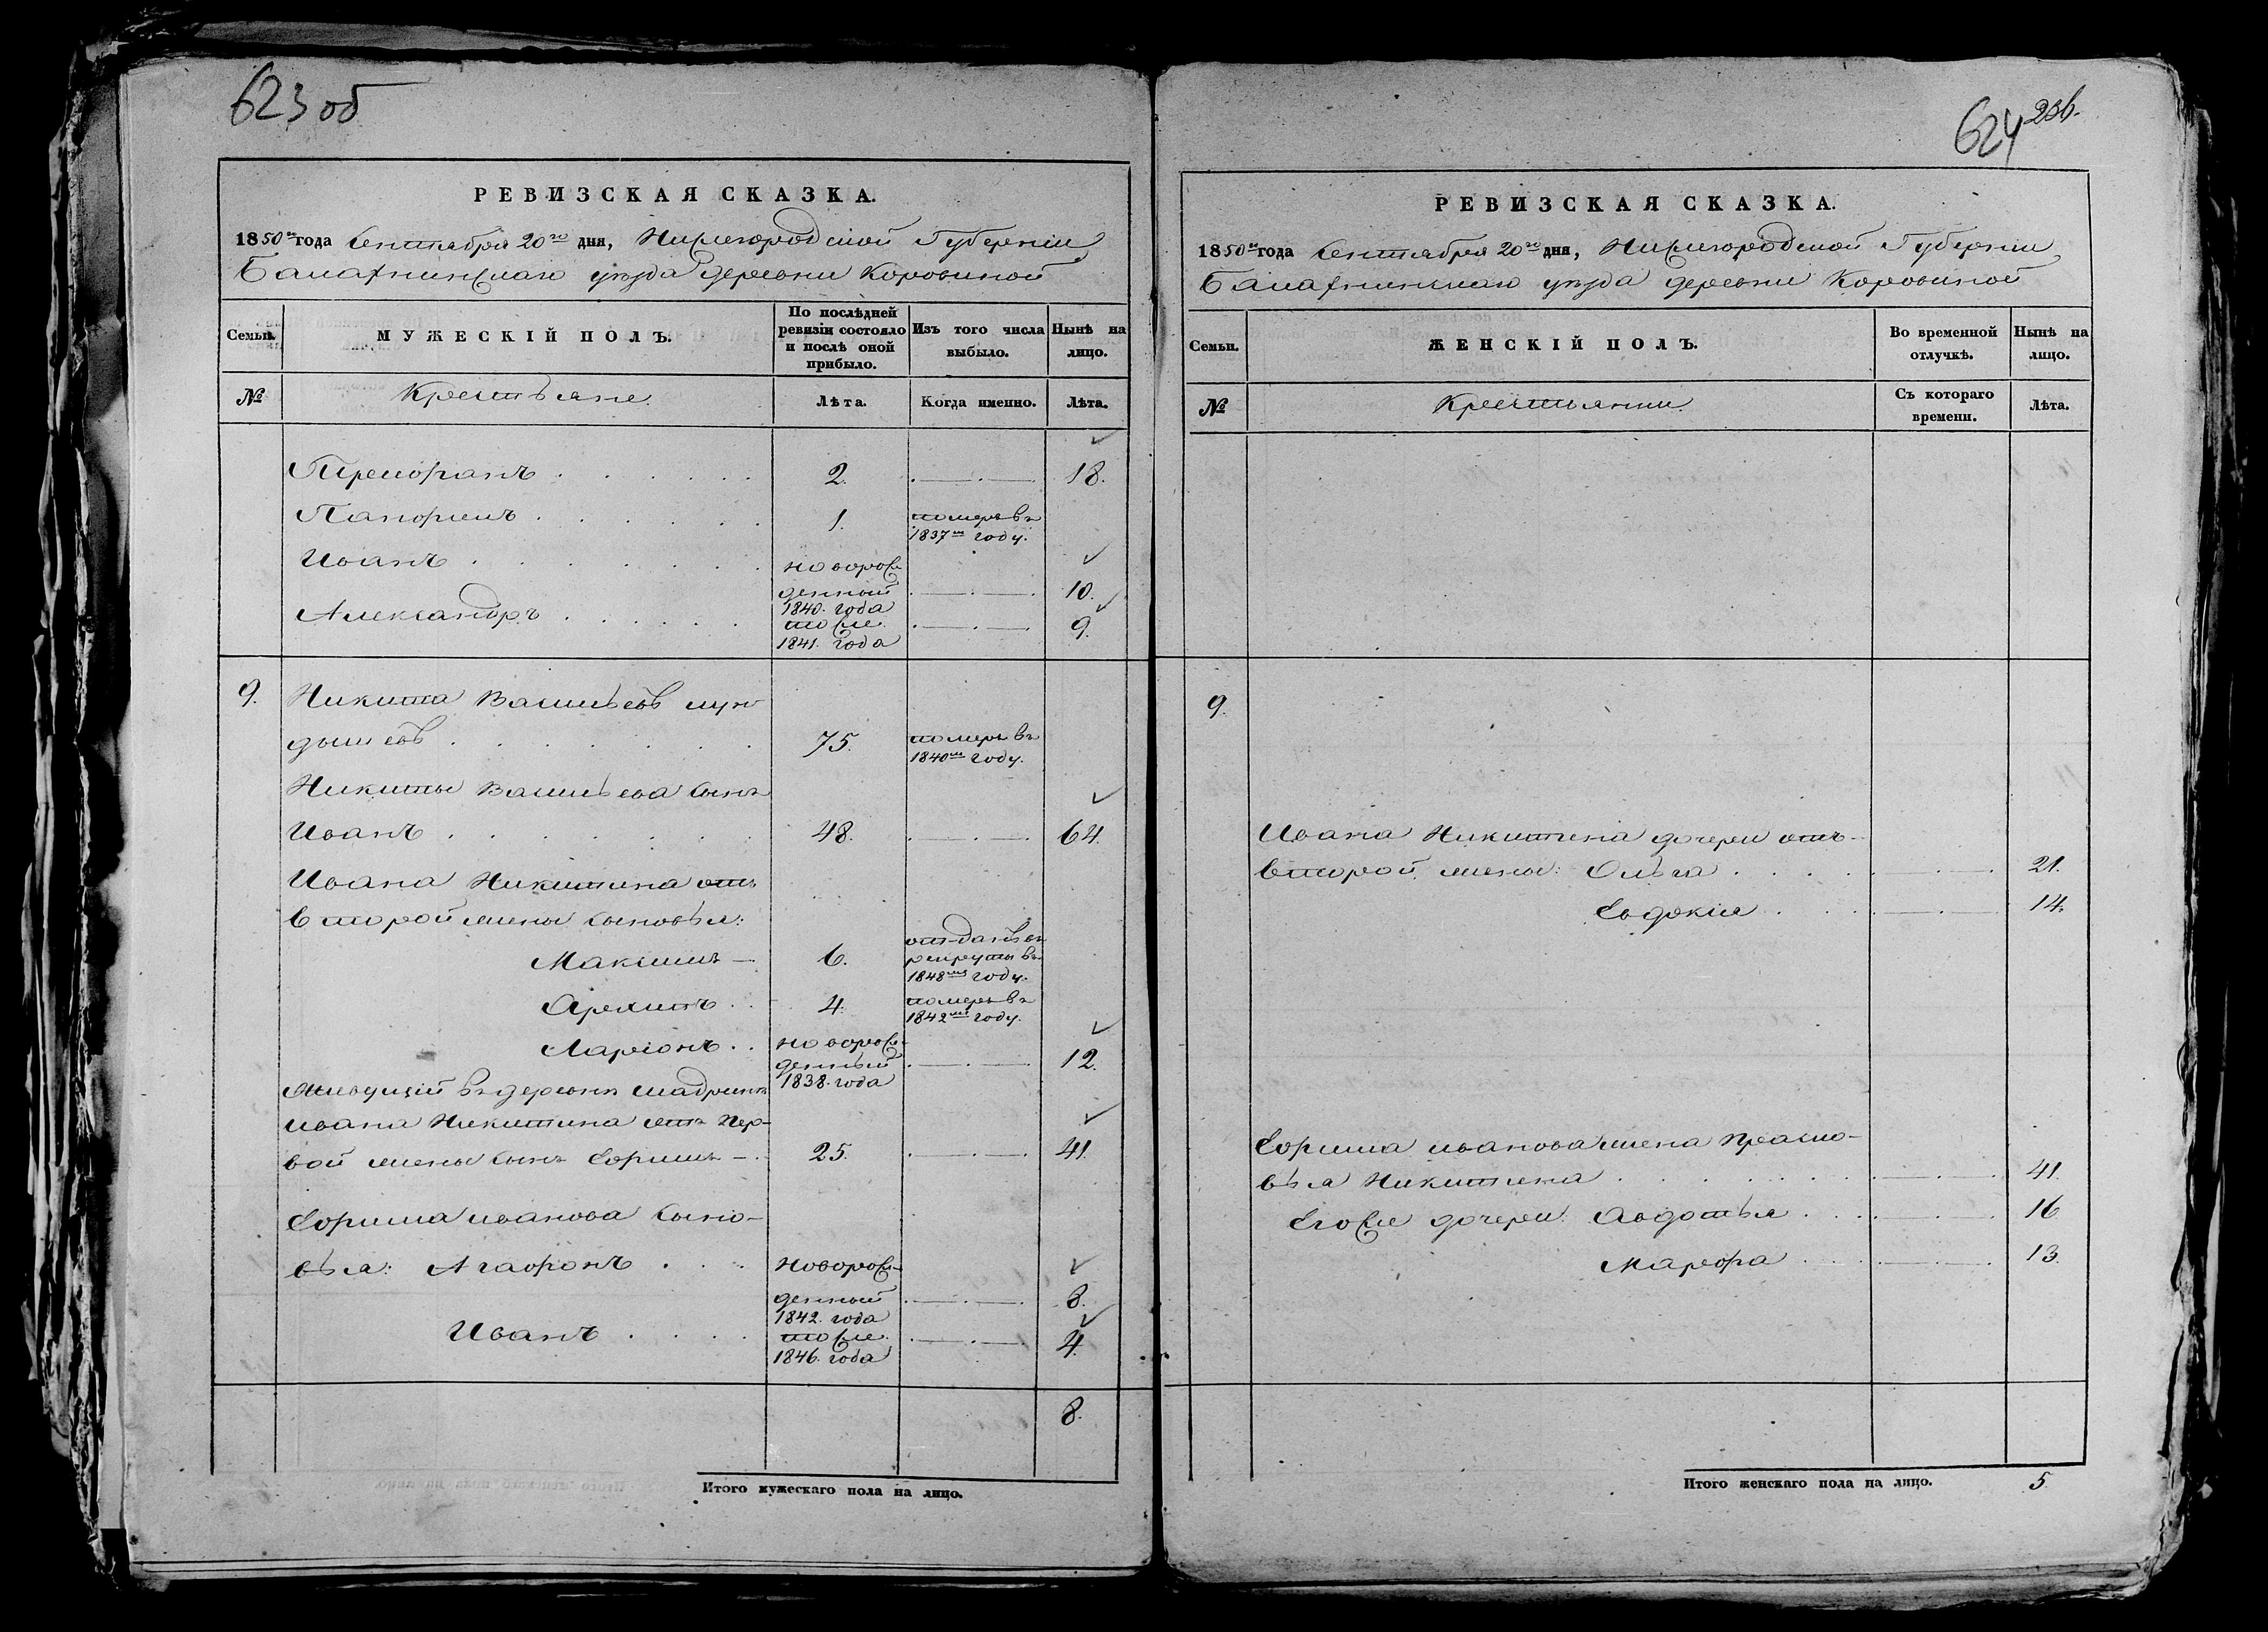 623 об
РЕВИЗСКАЯ СКАЗКА.
1850го года Сентября 20го дня, Нижегородской Губерніи
Балахнинскаго уѣзда деревни Коровиной
Семьи.
МУЖЕСКІЙ ПОЛЪ.
По послѣдней ревизіи состояло и послѣ оной прибыло.
Изъ того числа выбыло.
Нынѣ на лицо.
№
Крестьяне.
Лѣта.
Когда именно.
Лѣта.
2. 18.
1. померъ въ
1837м году.
Иванъ новорож-
денный 10.
1840. года
Александръ тоже 9.
1841. года
9. Никита Васильевъ
дышевъ 75. померъ въ
1840м году.
Никиты Васильева сынъ
Иванъ 48. 64.
Ивана Никитина отъ
второй жены сыновья:
Максимъ 6. отданъ въ
рекруты въ
1848м году.
Архипъ 4. померъ въ
1842м году.
Ларіонъ новорож-
денный 12.
1838. года
Живущій въ деревнѣ Шадринѣ
Ивана Никитина отъ пер-
вой жены сынъ Ефимъ 25. 41.
Ефима Иванова сыно-
вья: Агафонъ новорож-
денный 8.
1842. года
Иванъ тоже 4.
1846. года
8.
Итого мужескаго пола на лицо.
624 236.
РЕВИЗСКАЯ СКАЗКА.
1850го года Сентября 20го дня, Нижегородской Губерніи
Балахнинскаго уѣзда деревни Коровиной
Семьи.
ЖЕНСКІЙ ПОЛЪ.
Во временной отлучкѣ.
Нынѣ на лицо.
№
Крестьянки.
Съ котораго времени.
Лѣта.
9.
Ивана Никитина дочери отъ
второй жены: Ольга 21.
Евдокія 14.
Ефима Иванова жена Праско-
вья Никитина 41.
Его же дочери: Авдотья 16
Марфа 13.
Итого женскаго пола на лицо. 5.